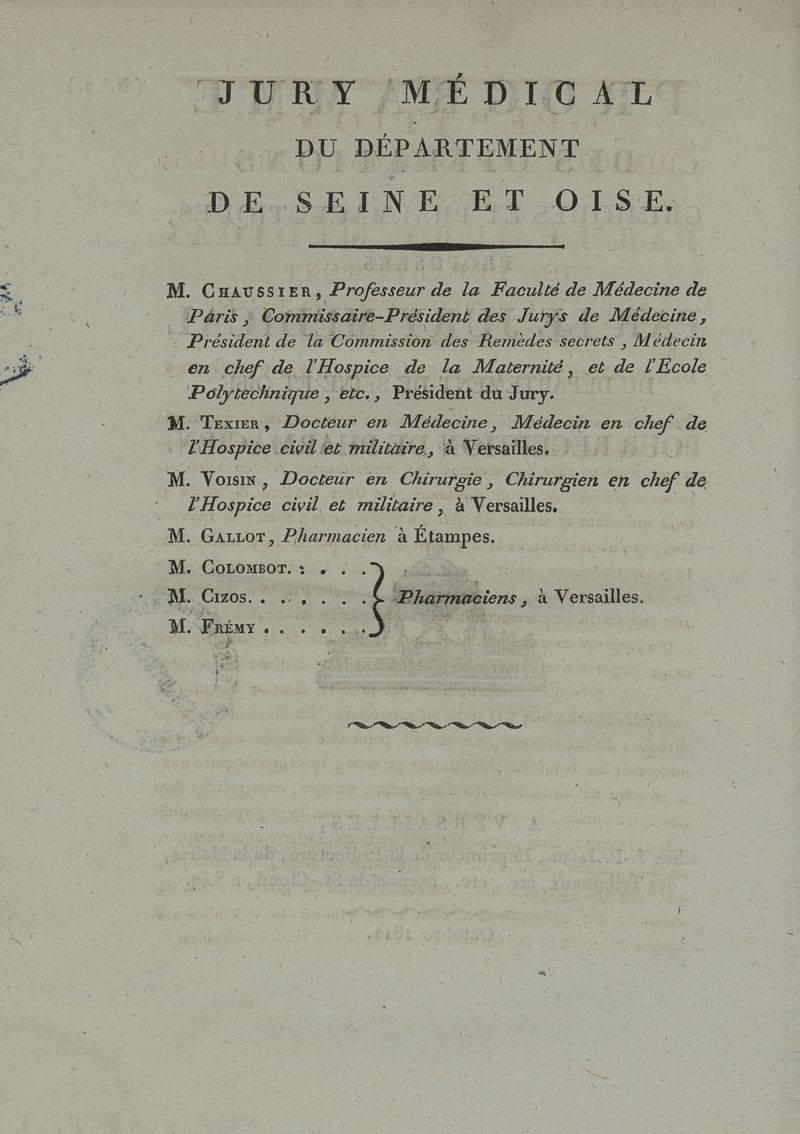 JURY MÉDICAL
DU DÉPARTEMENT
DE SEINE ET OISE.
M. CHAUSSIER, Professeur de la Faculté de Médecine de
Paris, Commissaire-Président des Jurys de Médecine,
Président de la Commission des Remèdes secrets, Médecin
en chef de l'Hospice de la Maternité, et de l'Ecole
Polytechnique, etc., Président du Jury.
M. TEXIER, Docteur en Médecine, Médecin en chef de
l'Hospice civil et militaire, à Versailles.
M. VOISIN, Docteur en Chirurgie, Chirurgien en chef de
l'Hospice civil et militaire, à Versailles.
M. GALLOT, Pharmacien à Étampes.
M. COLOMBOT. : . . .
M. CIZOS. . . . . . . } Pharmaciens, à Versailles.
M. FRÉMY . . . . . .